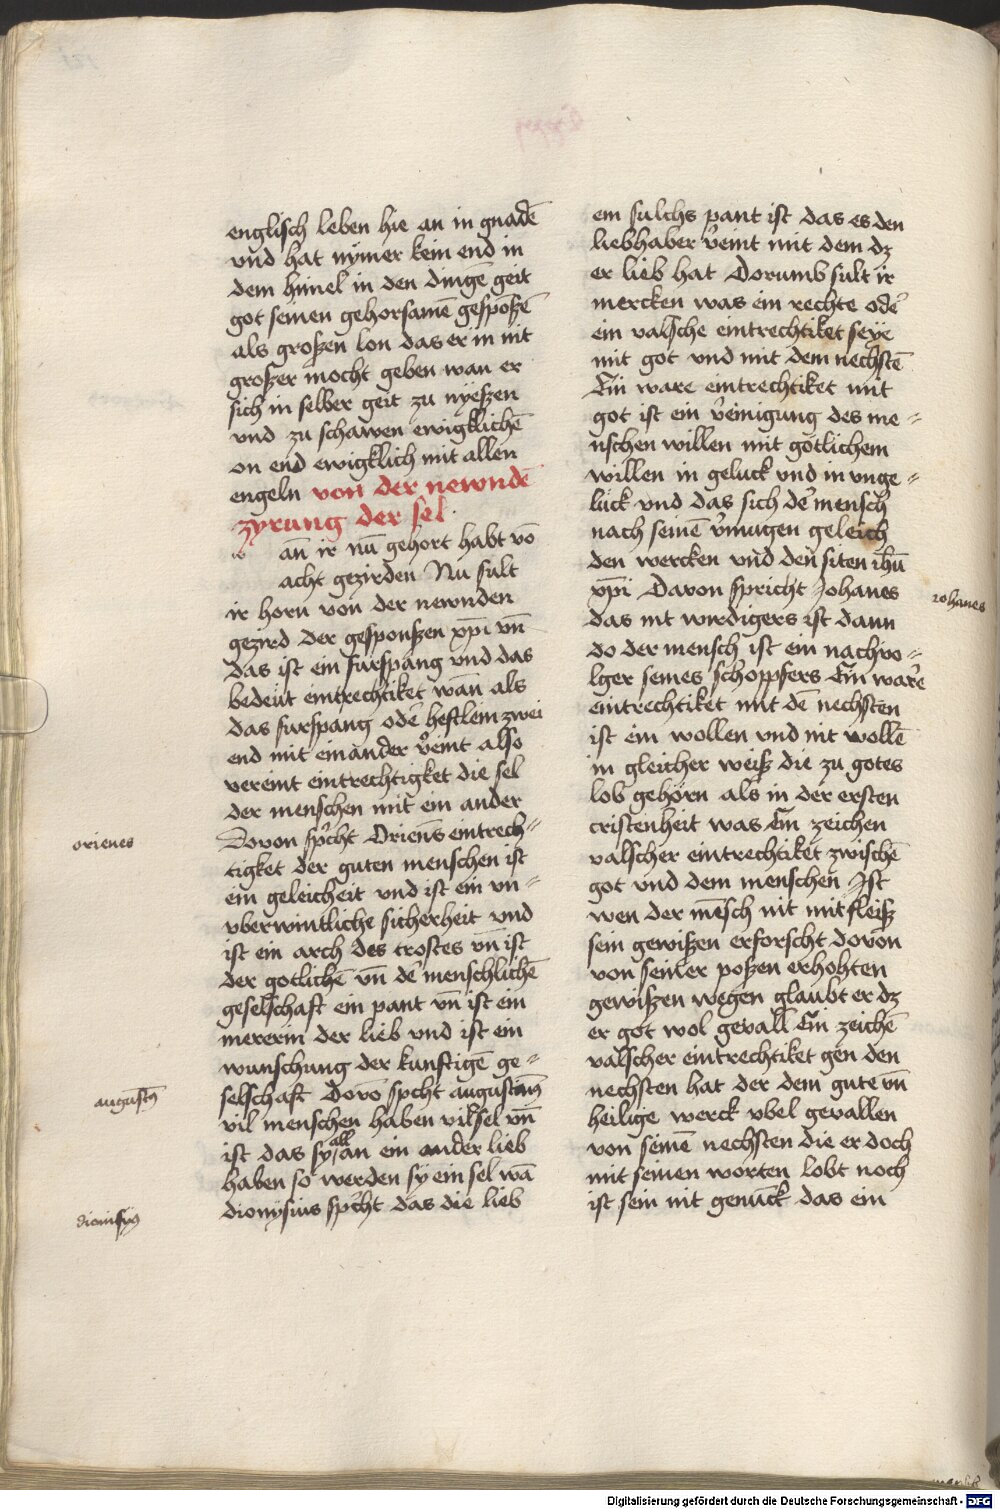 englisch leben hie an in gnadē
vnd hat nymer kein end in
dem himel in den dingē geit
got seinen gehorsamē gespōßē
als großen lon das er in nit
großer mocht geben wan er
sich in selber geit zu nyeßen
vnd zu schawen ewigklichē
on end ewigklich mit allen
engeln von der newndē
zyrung der sel
w an ir nū gehort habt vō
acht gezirden Nu sult
ir horn von der newnden
gezird der gesponßen xpī vn̄
das ist ein furspang vnd das
bedeut eintrechtiket wān als
das furspang oder heftlein zwei
end mit einander v̾eint also
vereint eintrechtigket die sel
der menschen mit ein ander
Dovon sp̾cht Orienēs eintrech⸗
tigket der guten menschen ist
ein geleicheit vnd ist ein vn⸗
vberwintliche sicherheit vnd
ist ein arch des trostes vn̄ ist
der gotlichē vn̄ de̾ menschlichē
geselschaft ein pant vn̄ ist ein
mererin der lieb vnd ist ein
wunschung der kunftigē ge⸗
selschaft Dovō sp̾cht augustinꝰ
vil menschen haben vil sel vn̄
ist das sy all an ein ander lieb
haben so werden sy ein sel wā
dionysius sp̾cht das die lieb
orienes
augustꝰ
dionisyꝰ
ein sulchs pant ist das es den
liebhaber v̾eint mit dem dz
er lieb hat Dorumb sult ir
mercken was ein rechte ode̾
ein valsche eintrechtiket seye
mit got vnd mit dem nechstē
Ein ware eintrechtiket mit
got ist ein v̾einigung des me⸗
nschen willen mit gotlichem
willen in geluck vnd in vnge⸗
luck vnd das sich de̾ mensch
nach seinē v̾mugen geleich
den wercken vnd den siten ih̄u
xp̄i Davon spricht Johanes
das nit wirdigers ist dann
do der mensch ist ein nachvo⸗
lger seines schoppfers Ein ware
eintrechtiket mit dē nechsten
ist ein wollen vnd nit wollē
in gleicher weiß die zu gotes
lob gehorn als in der ersten
cristenheit was Ein zeichen
valscher eintrechtiket zwischē
got vnd dem menschen Ist
wen der mēsch nit mit fleiß
sein gewißen erforscht dovon
von seiner poßen erhohten
gewißen wegen glaubt er dz
er got wol gevall Ein zeichē
valscher eintrechtiket gen den
nechsten hat der dem gute vn̄
heilige werck vbel gevallen
von seinē nechsten die er doch
mit seinen worten lobt noch
ist sein nit genuck das ein
iohanes
Digitalisierung gefördert durch die Deutsche Forschungsgemeinschaft - DFG